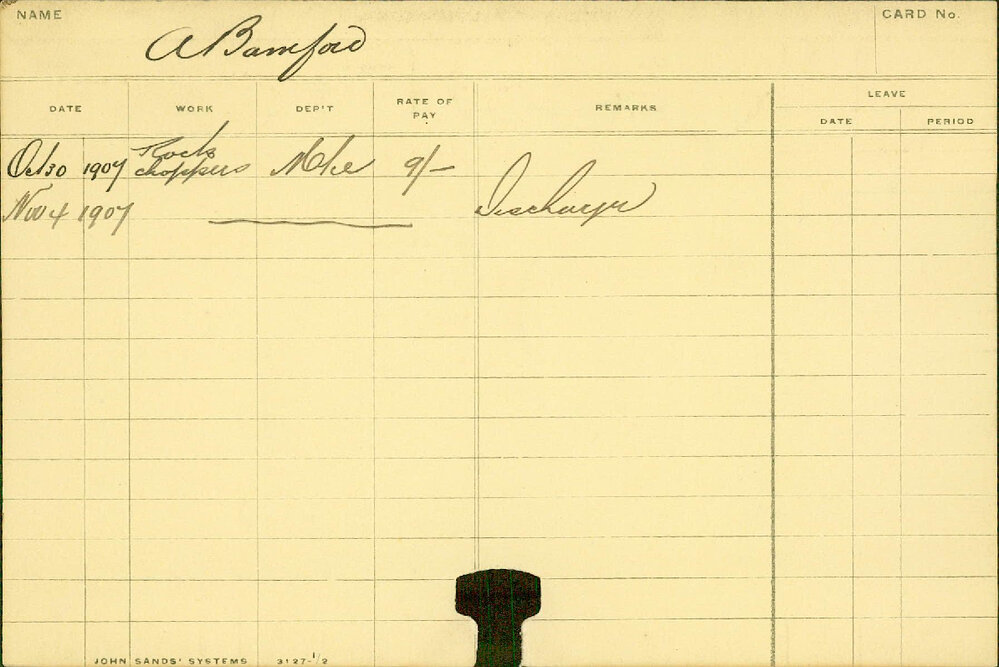 NAME
A Bamford
CARD No.
DATE WORK DEP'T RATE OF PAY REMARKS LEAVE
DATE PERIOD
Oct 30 1907 Rock choppers 9/-
Nov 4 1907 Discharged
JOHN SANDS' SYSTEMS 3127-1/2